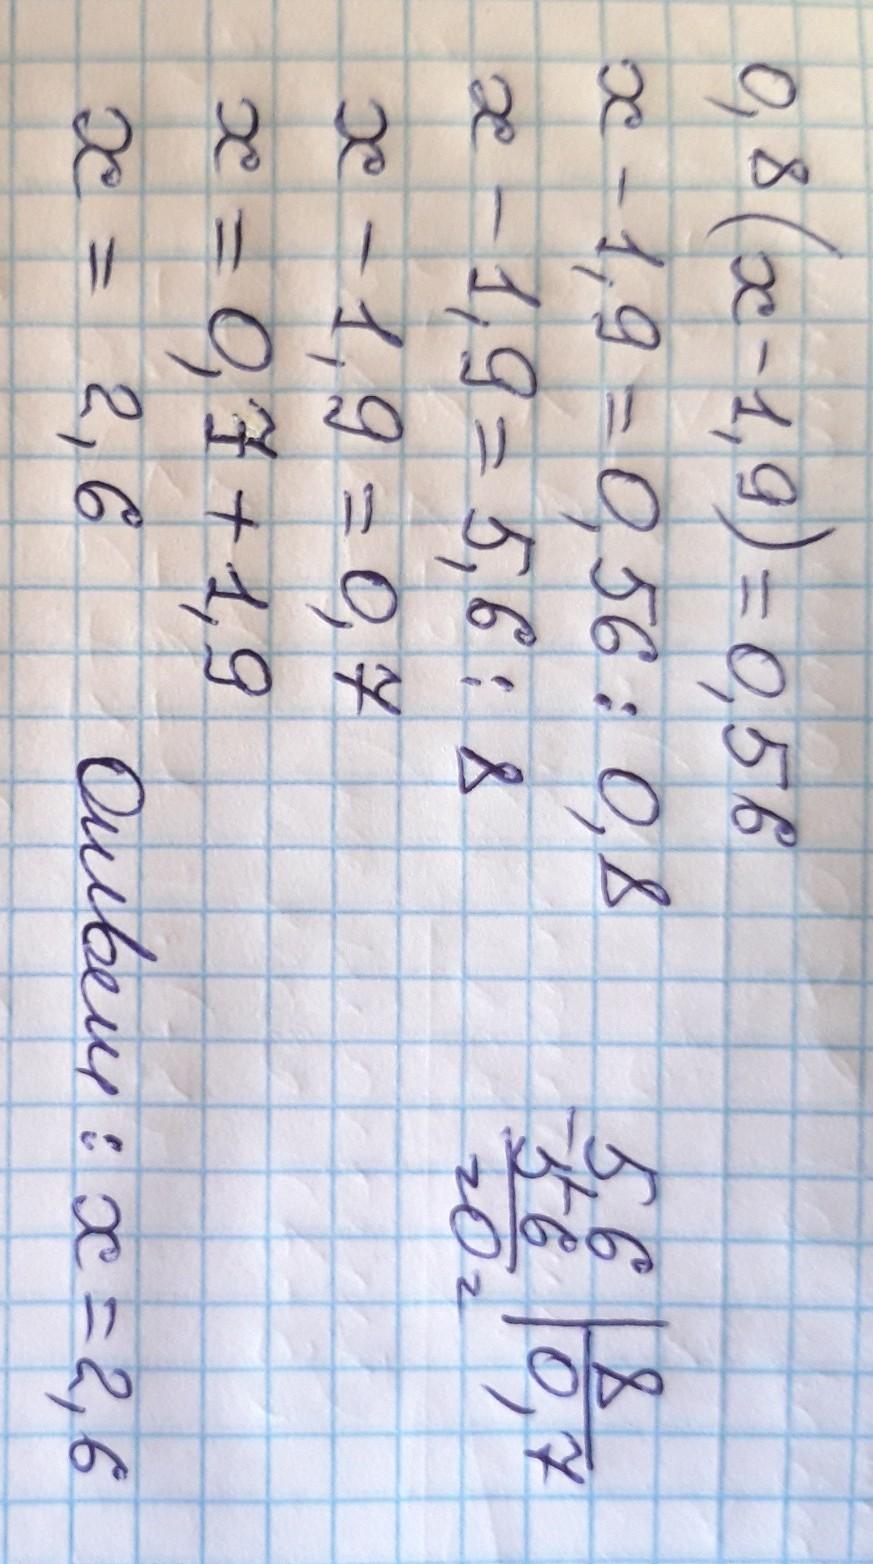 0,8(x-1,9)=0,56
x-1,9=0,56:0,8
x-1,9=5,6:8
x-1,9=0,7
x=0,7+1,9
x=2,6 Ответ: x=2,6
56|8
-56 0,7
=0=